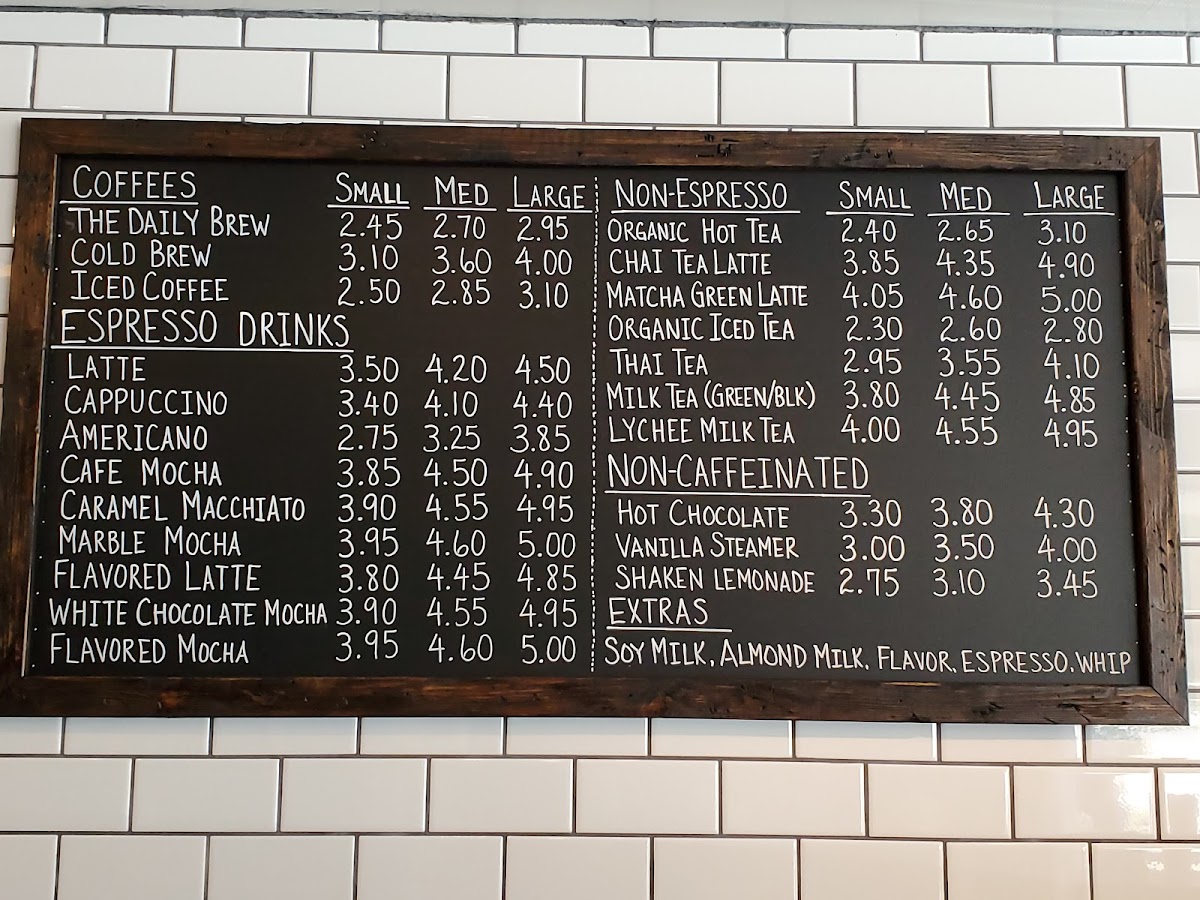 COFFEES SMALL MED LARGE
THE DAILY BREW 2.45 2.70 2.95
COLD BREW 3.10 3.60 4.00
ICED COFFEE 2.50 2.85 3.10
ESPRESSO DRINKS
LATTE 3.50 4.20 4.50
CAPPUCCINO 3.40 4.10 4.40
AMERICANO 2.75 3.25 3.85
CAFE MOCHA 3.85 4.50 4.90
CARAMEL MACCHIATO 3.90 4.55 4.95
MARBLE MOCHA 3.95 4.60 5.00
FLAVORED LATTE 3.80 4.45 4.85
WHITE CHOCOLATE MOCHA 3.90 4.55 4.95
FLAVORED MOCHA 3.95 4.60 5.00
NON-ESPRESSO SMALL MED LARGE
ORGANIC HOT TEA 2.40 2.65 3.10
CHAI TEA LATTE 3.85 4.35 4.90
MATCHA GREEN LATTE 4.05 4.60 5.00
ORGANIC ICED TEA 2.30 2.60 2.80
THAI TEA 2.95 3.55 4.10
MILK TEA (GREEN/BLK) 3.80 4.45 4.85
LYCHEE MILK TEA 4.00 4.55 4.95
NON-CAFFEINATED
HOT CHOCOLATE 3.30 3.80 4.30
VANILLA STEAMER 3.00 3.50 4.00
SHAKEN LEMONADE 2.75 3.10 3.45
EXTRAS
SOY MILK, ALMOND MILK, FLAVOR, ESPRESSO, WHIP